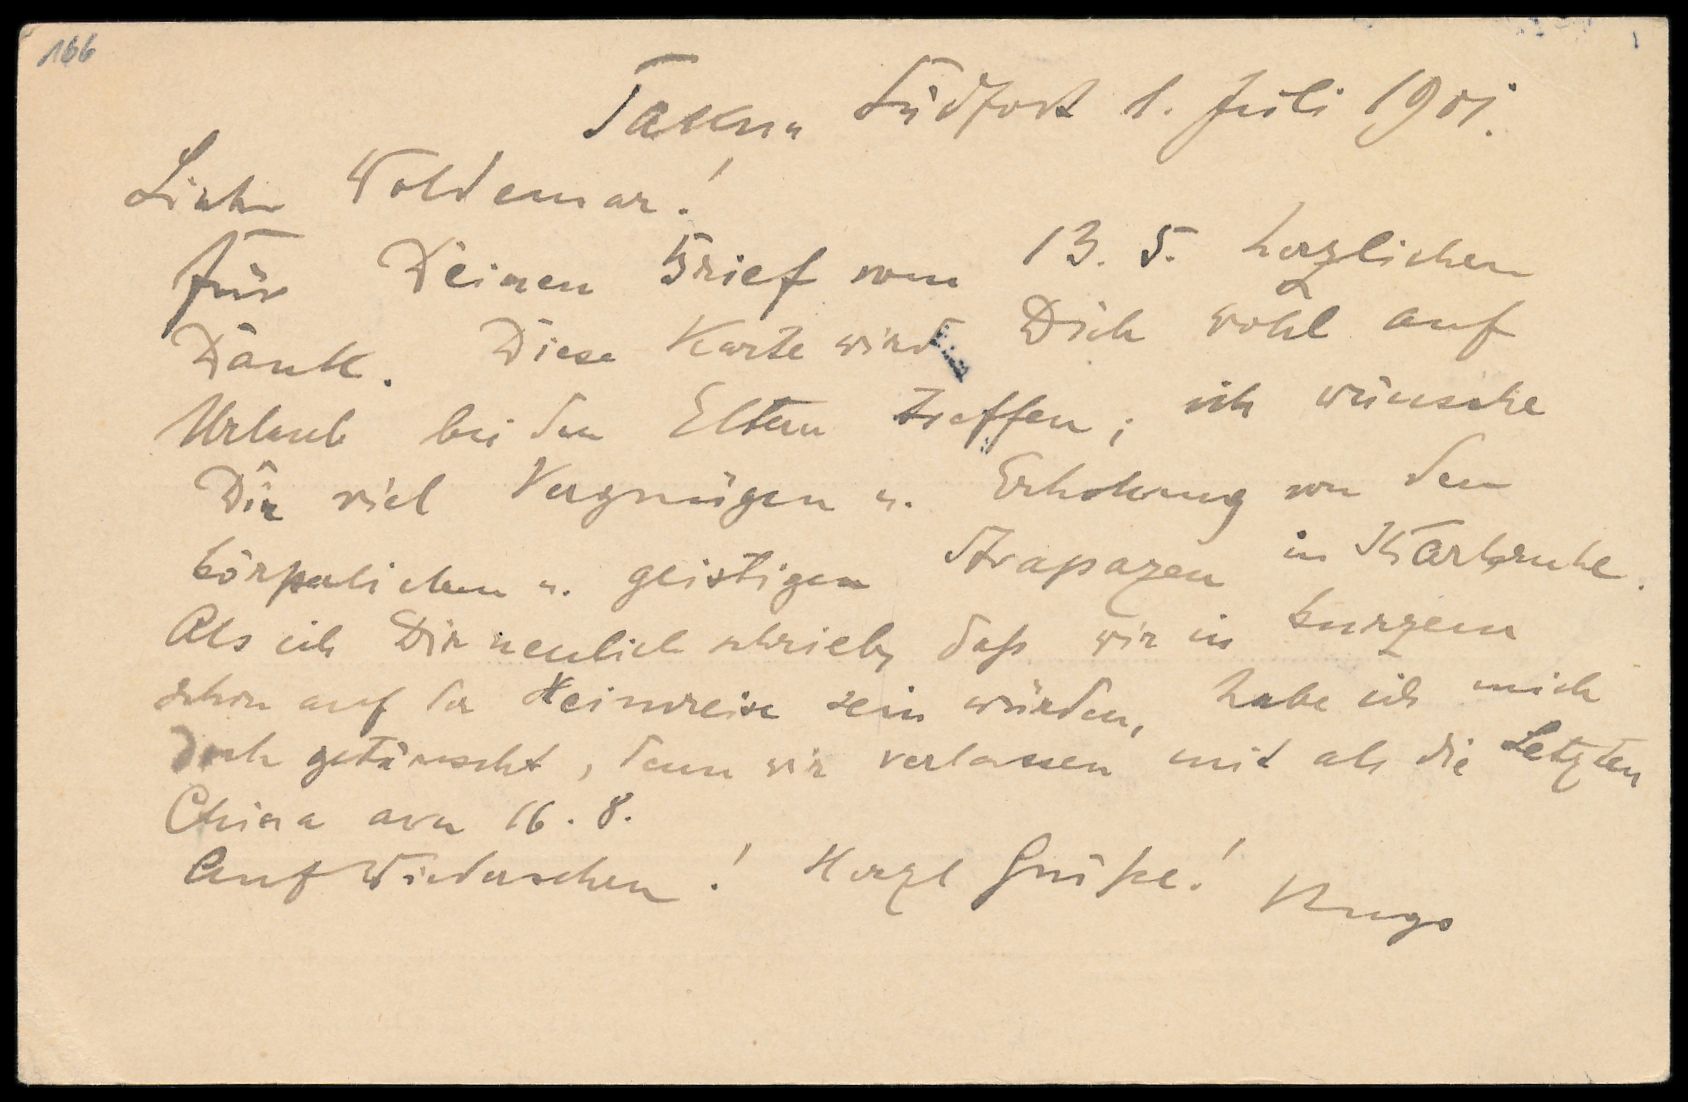 166
Taku, Südfort 1. Juli 1901.
Lieber Woldemar!
Für Deinen Brief vom 13. 5. herzlichen
Dank. Diese Karte wird Dich wohl auf
Urlaub bei den Eltern treffen; ich wünsche
Dir viel Vergnügen u. Erholung von den
körperlichen u. geistigen Strapazen in Karlsruhe.
Als ich Dir neulich schrieb, daß wir in kurzem
schon auf der Heimreise sein würden, habe ich mich
doch getäuscht, denn wir verlassen mit als die Letzten
China am 16. 8.
Auf Wiedersehen! Herzl Grüße! Hugo